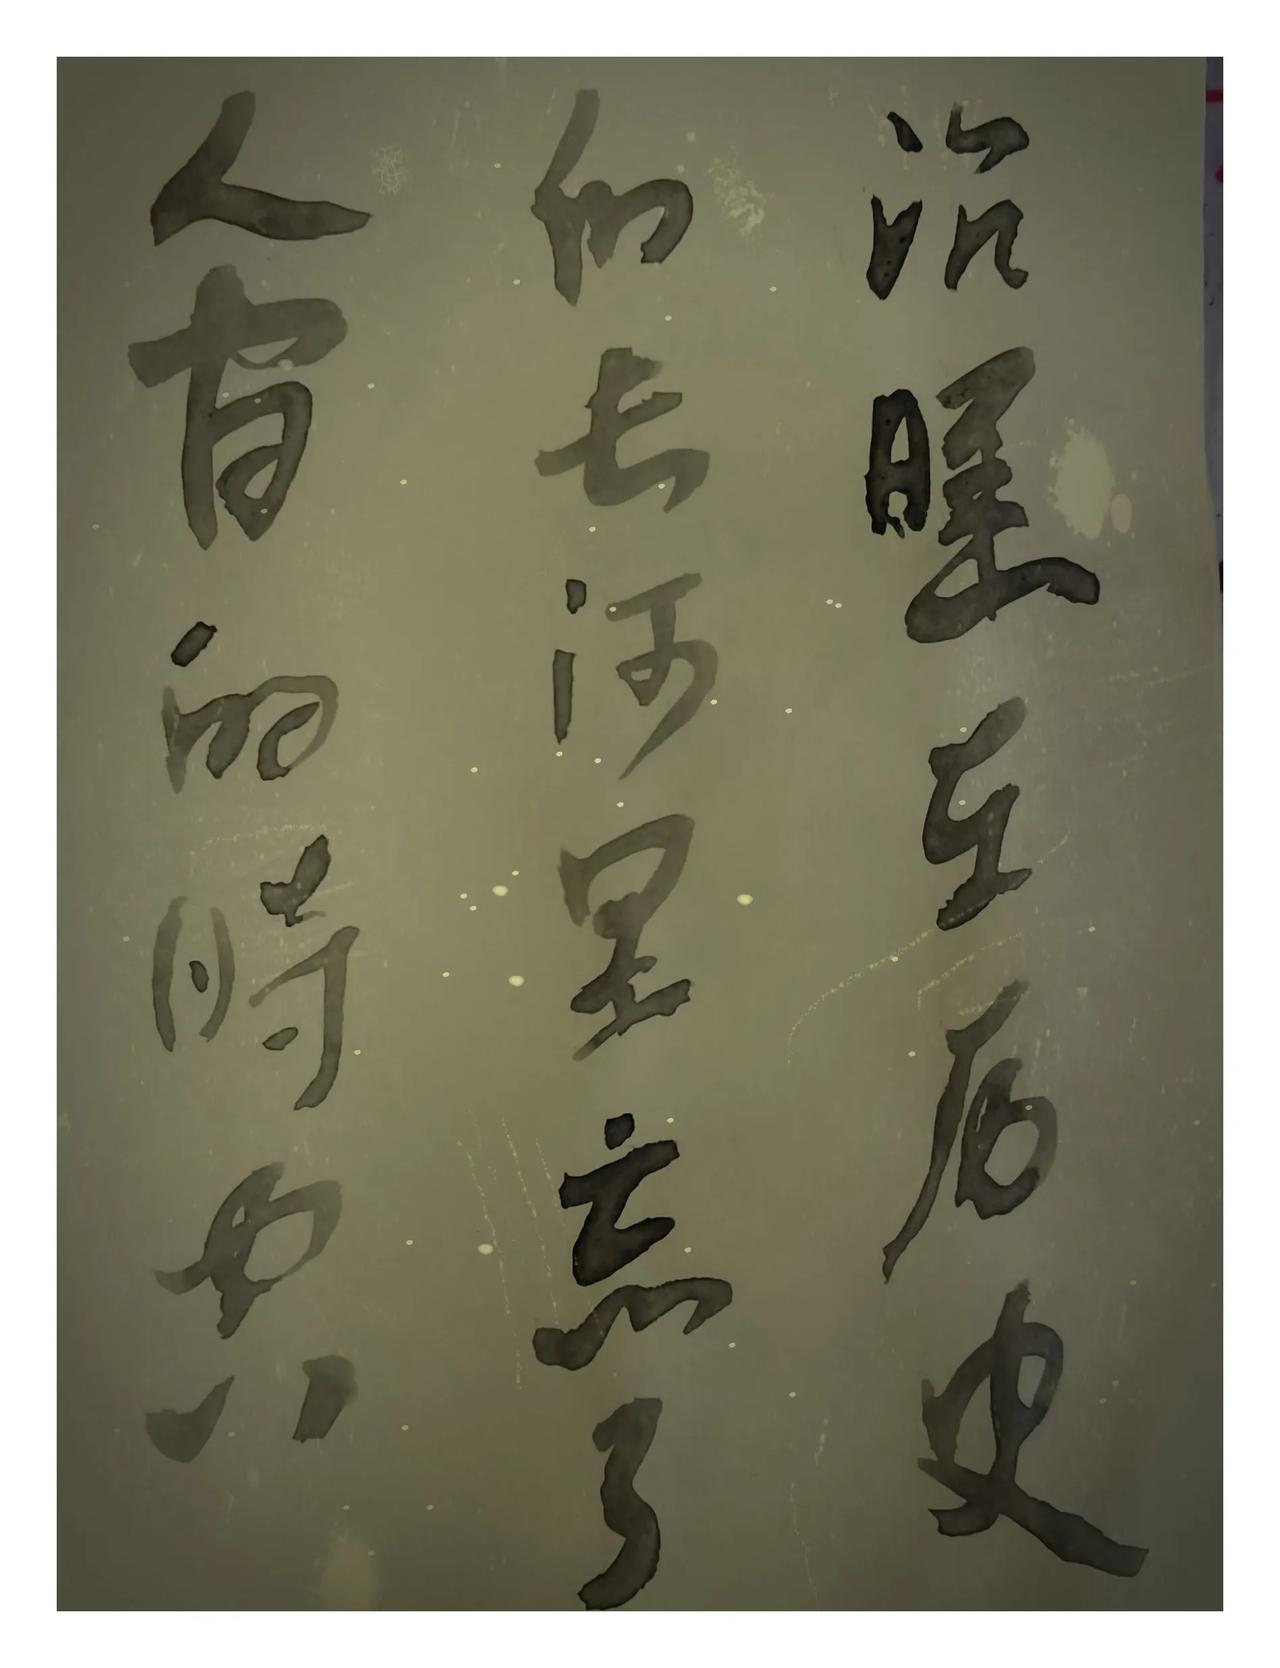 沉睡在历史
的长河里忘了
人有的時